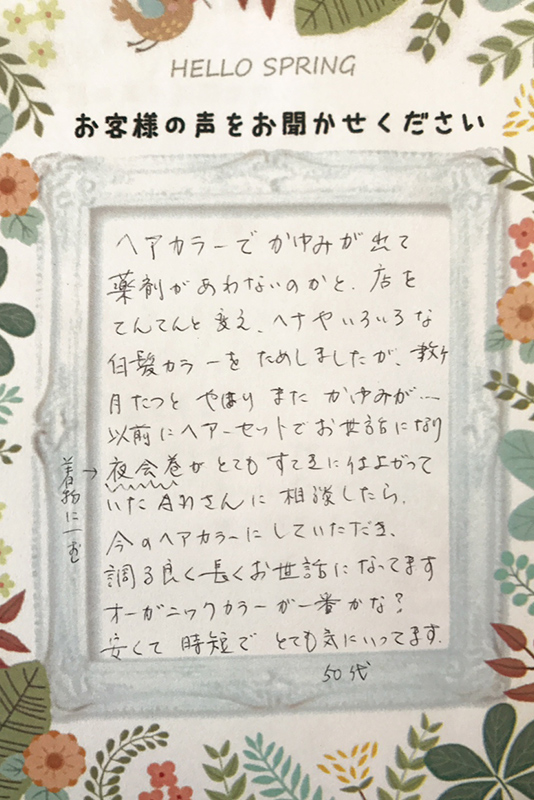 HELLO SPRING
お客様の声をお聞かせください
ヘアカラーでかゆみが出て
薬剤があわないのかと、店を
てんてんと変え、ヘナやいろいろな
白髪カラーをためしましたが、数ケ
月たつと やはり また かゆみが…
以前にヘアーセットでお世話になり
夜会巻がとてもすてきに仕上がって
いた さんに 相談したら、
今のヘアカラーにしていただき、
調る良く長くお世話になってます
オーガニックカラーが一番かな?
安くて 時短で とても気にいってます.
50代
着物に→